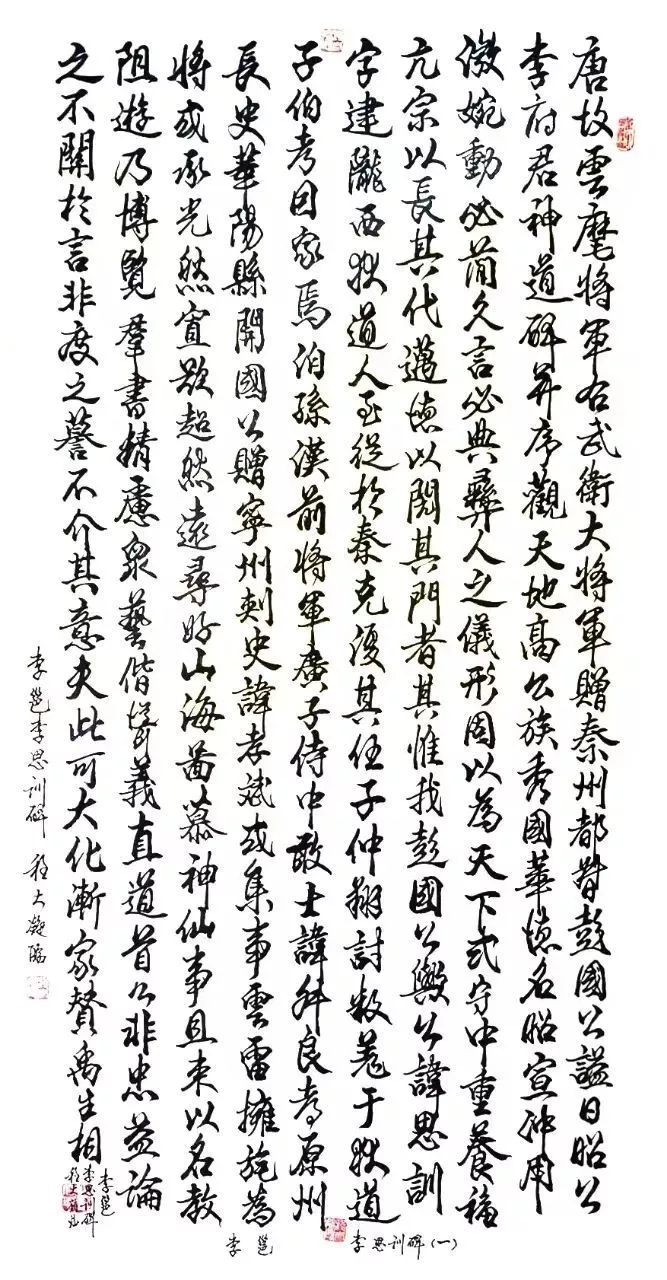 唐故雲麾將軍右武衛大將軍贈秦州都督彭國公謚曰昭公
李府君神道碑并序觀天地高公族秀國華德名昭宣沖用
微婉動必簡久言必典彝人之儀形固以為天下式守中重養福
亢宗以長其代邁德以閎其門者其惟我彭國公歟公諱思訓
字建隴西狄道人至從於秦克復其任子仲翔討叛羌于狄道
子伯考因家焉伯孫漢前將軍廣子侍中敢士諱升良考原州
長史華陽縣開國公贈寧州刺史諱孝斌或集事雲雷擁旄為
將或承光然宣款超然遠尋好山海圖慕神仙事且束以名教
阻遊乃博覽群書精慮眾藝偕義直道首公非忠益論
之不關於言非度之謩不介其意夫此可大化漸家贊禹生相
李邕李思訓碑 程大凝臨
李邕
李思訓碑
李邕
李思訓碑(一)